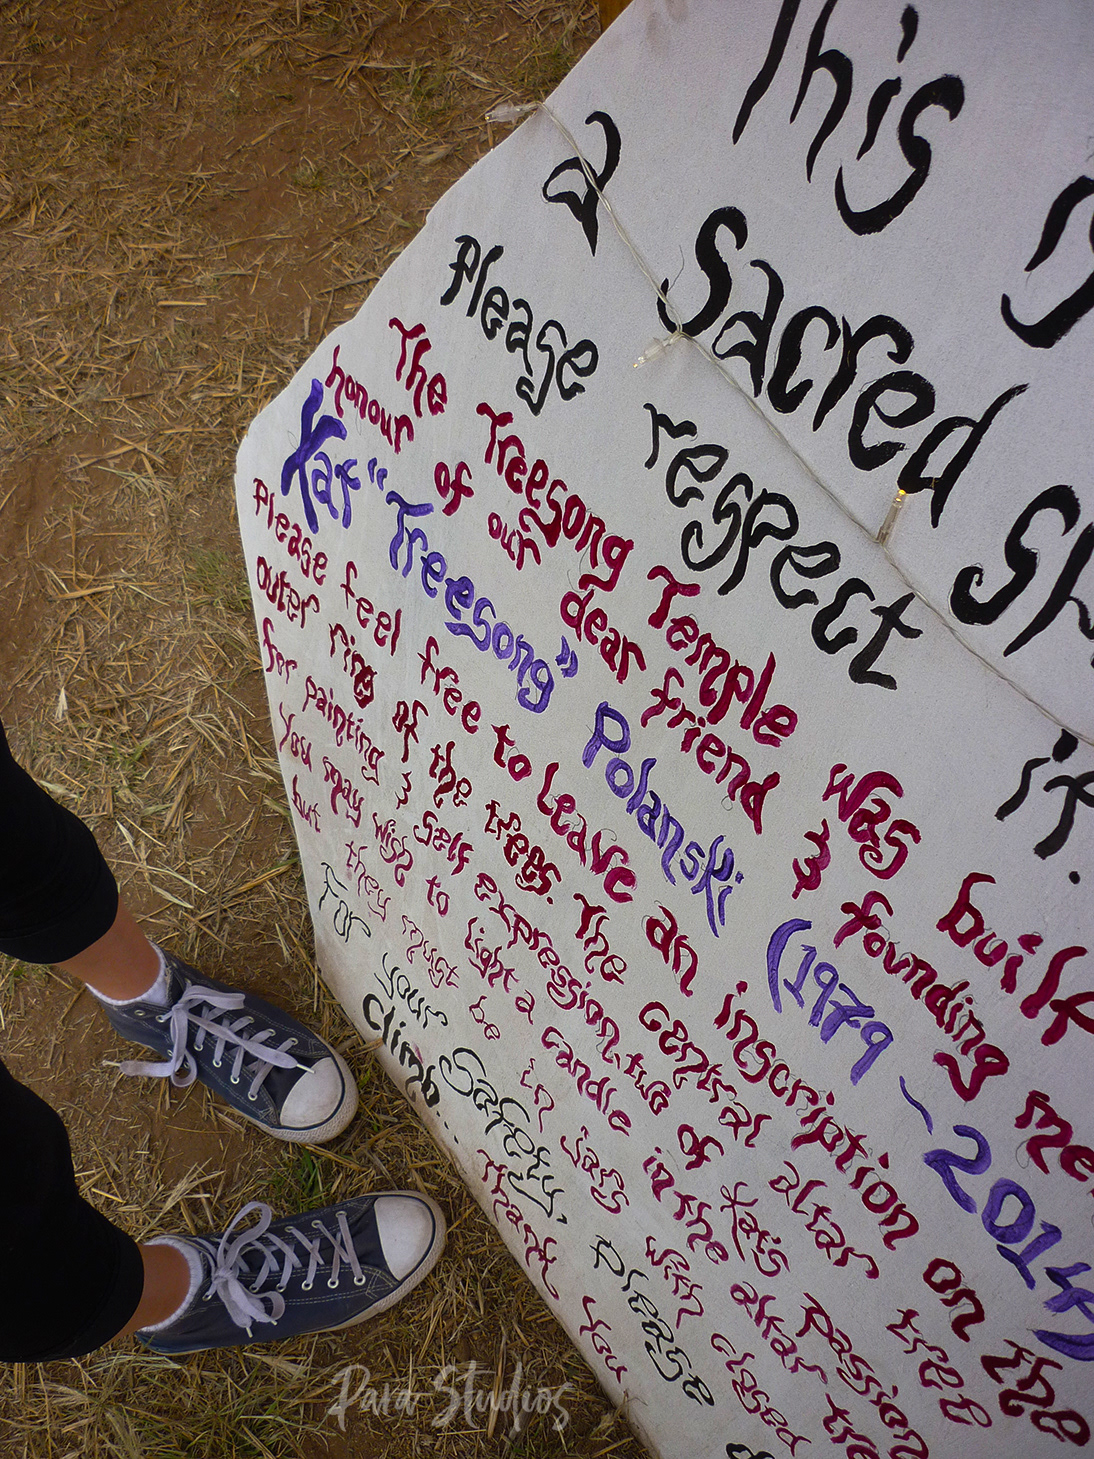 This i
a Sacred Sp
Please respect it.
The Treesong Temple was built
honour of our dear friend & founding me
Kat "Treesong" Polanski (1979 ~ 2014)
Please feel free to leave an inscription on the
outer ring of the trees. The central altar tree
for painting & self expression, two of Kat's passion
You may wish to light a candle in the altar tre
but they must be in jars with closed
For your Safety, Please
climb...
Thank You
Para Studios